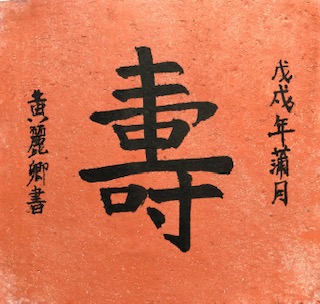 戊戌年蒲月
壽
黃麗卿書